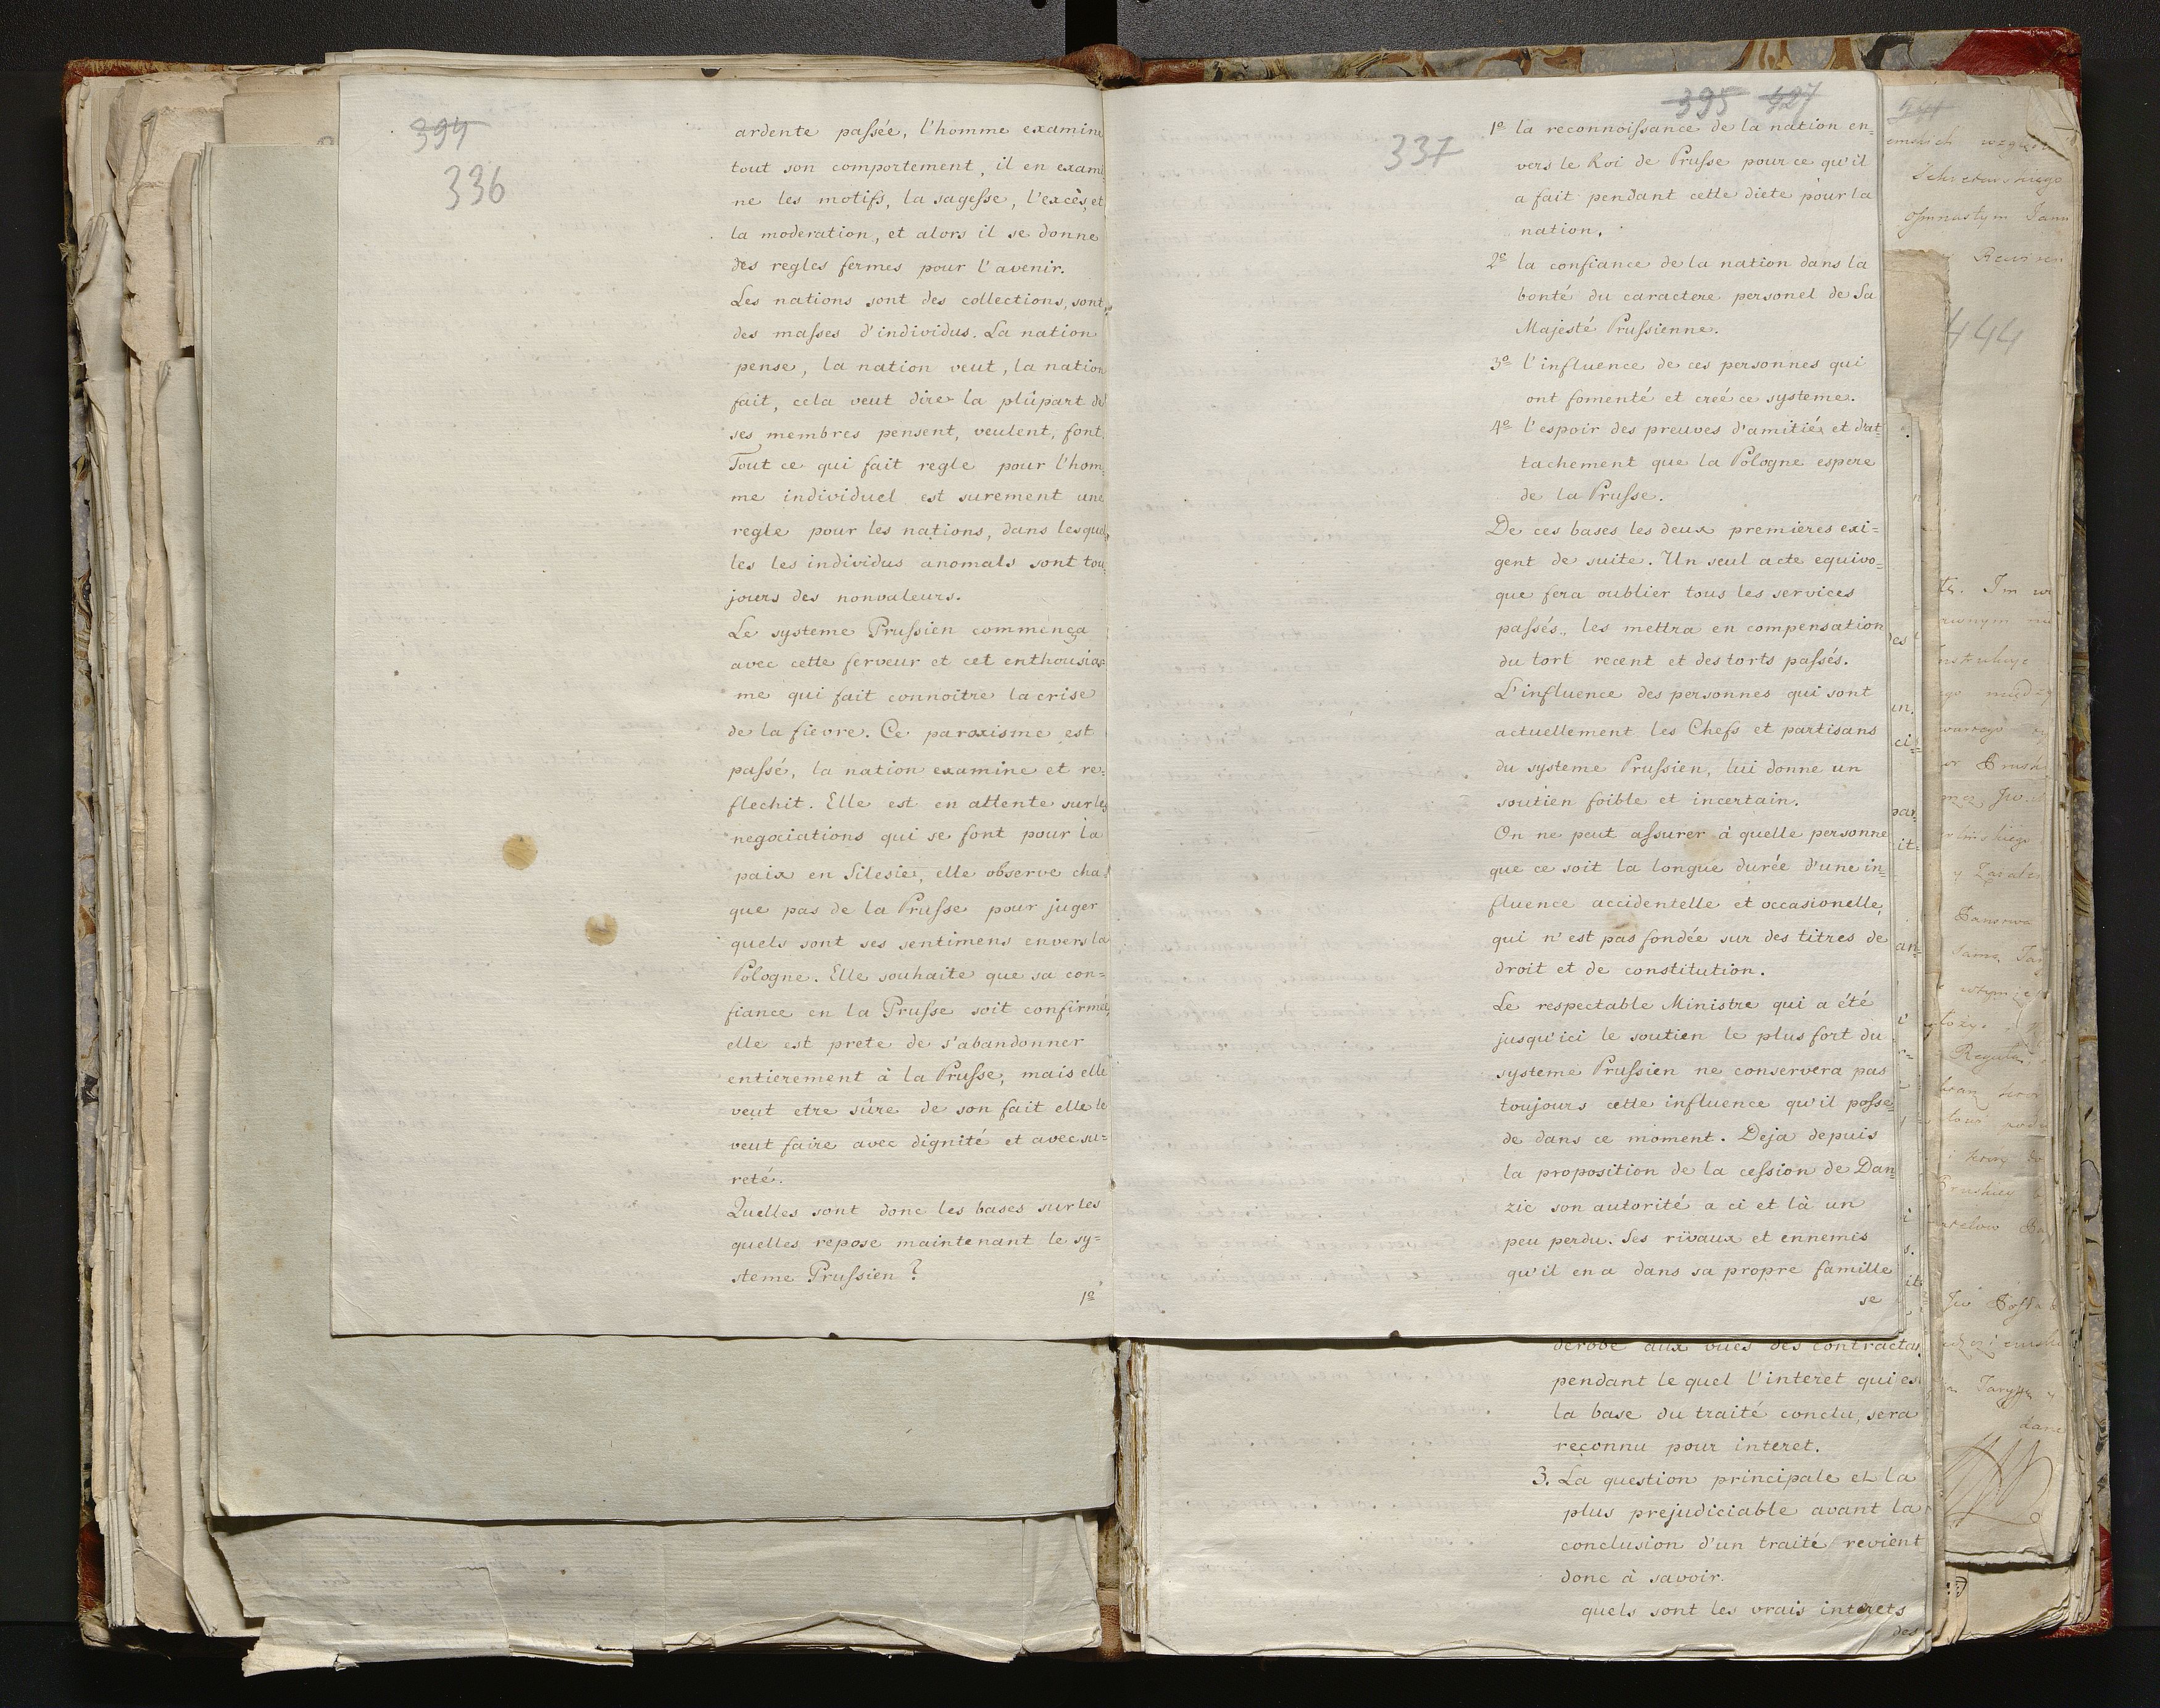 394
336
ardente passée, l'homme examine
tout son comportement, il en exami
ne les motifs, la sagesse, l'excès, et
la moderation, et alors il se donne
des regles fermes pour l'avenir.
Les nations sont des collections, sont
des masses d'individus. La nation
pense, la nation veut, la nation
fait, cela veut dire la plûpart de
ses membres pensent, veulent, font.
Tout ce qui fait regle pour l'hom=
me individuel est surement une
regle pour les nations, dans lesquel=
les les individus anomals sont tou=
jours des nonvaleurs.
Le systeme Prussien commença
avec cette ferveur et cet enthousias=
me qui fait connoitre la crise
de la fievre. Ce paroxisme est
passé, la nation examine et re=
flechit. Elle est en attente sur les
negociations qui se font pour la
paix en Silesie, elle observe cha
que pas de la Prusse pour juger
quels sont ses sentimens envers la
Pologne. Elle souhaite que sa con=
fiance en la Prusse soit confirmée,
elle est prete de s'abandonner
entierement à la Prusse, mais elle
veut etre sûre de son fait elle le
veut faire avec dignité et avec su=
reté.
Quelles sont donc les bases sur les
quelles repose maintenant le sy=
steme Prussien?
1º
395 427
337
1º la reconnoissance de la nation en=
vers le Roi de Prusse pour ce qu'il
a fait pendant cette diete pour la
nation.
2º la confiance de la nation dans la
bonté du caractere personel de Sa
Majesté Prussienne.
3º l'influence de ces personnes qui
ont fomenté et créé ce systeme.
4º l'espoir des preuves d'amitié et d'at=
tachement que la Pologne espere
de la Prusse.
De ces bases les deux premieres exi=
gent de suite. Un seul acte equivo=
que fera oublier tous les services
passés, les mettra en compensation
du tort recent et des torts passés.
L'influence des personnes qui sont
actuellement les Chefs et partisans
du systeme Prussien, lui donne un
soutien foible et incertain.
On ne peut assurer à quelle personne
que ce soit la longue durée d'une in=
fluence accidentelle et occasionelle,
qui n'est pas fondée sur des titres de
droit et de constitution.
Le respectable Ministre qui a été
jusqu'ici le soutien le plus fort du
systeme Prussien ne conservera pas
toujours cette influence qu'il posse=
de dans ce moment. Deja depuis
la proposition de la cession de Dan
zic son autorité a ci et là un
peu perdu. Ses rivaux et ennemis
qu'il en a dans sa propre famille
se
derobe aux vues des contractas
pendant le quel l'interet qui es
la base du traité conclu, sera
reconnu pour interet.
3. La question principale et la
plus prejudiciable avant la
conclusion d'un traité revient
donc à savoir.
quels sont les vrais interets
des
444